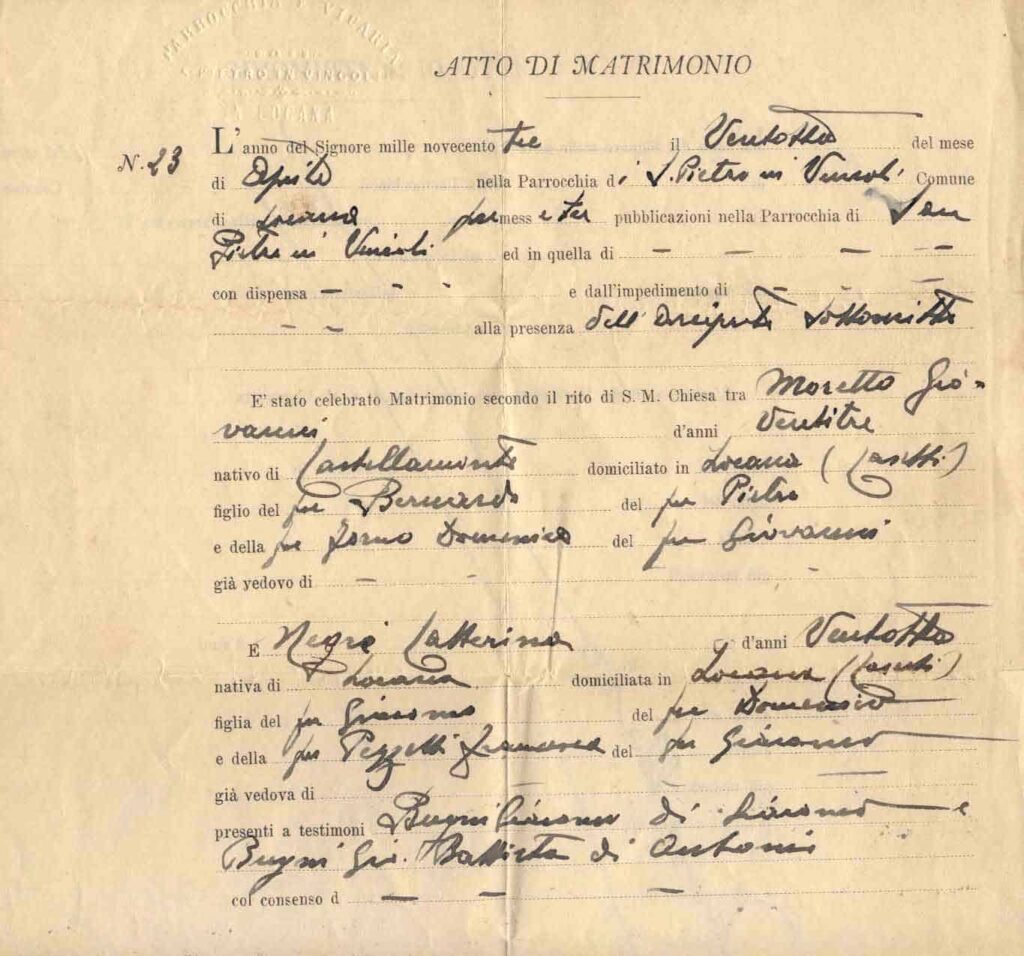 PARROCCHIA E VICARIA
S. PIETRO IN VINCOLI
LOCANA
ATTO DI MATRIMONIO
N. 23
L'anno del Signore mille novecento tre il Ventotto del mese
di Aprile nella Parrocchia di S. Pietro in Vincoli Comune
di Locana premesse tre pubblicazioni nella Parrocchia di San
Pietro in Vincoli ed in quella di — — — —
con dispensa — - - e dall'impedimento di — - —
- - alla presenza dell'Arciprete Sottoscritto
E' stato celebrato Matrimonio secondo il rito di S. M. Chiesa tra Moretto Gio-
vanni d'anni Ventitre
nativo di Castellamonte domiciliato in Locana (Casetti)
figlio del fu Bernardo del fu Pietro
e della fu Domenica del fu Giovanni
già vedovo di — -
E Negri Catterina d'anni Ventotto
nativa di Locana domiciliata in Locana (Casetti)
figlia del fu Giacomo del fu Domenico
e della fu Pezzetti Francesca del fu Giacomo
già vedova di — —
presenti a testimoni Bugni Giacomo di Giacomo e
Bugni Gio. Battista di Antonio
col consenso d — — —